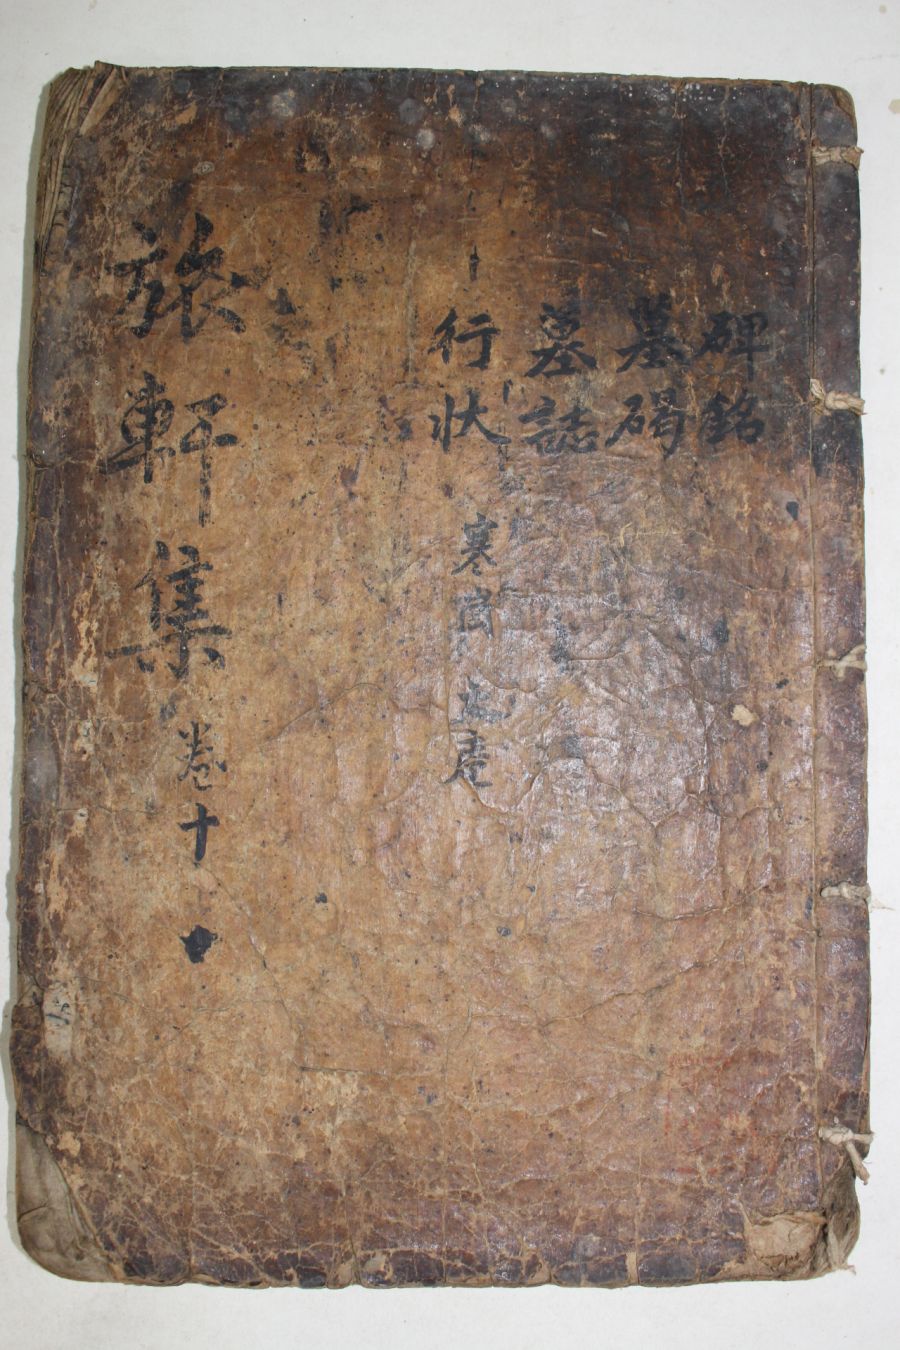 碑銘
墓碣
墓誌
行狀 寒岡
旅軒集 卷十